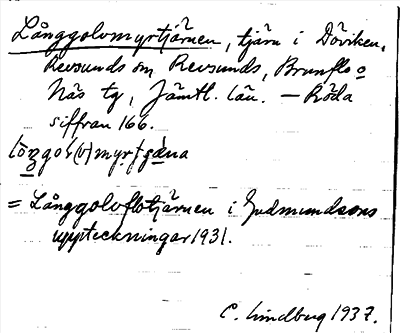 Långgolvmyrtjärnen, tjärn i Döviken,
Revsunds sn, Revsunds, Brunflo o
Näs tg, Jämtl. län. — Röda
siffran 166.
= Långgoloflotjärnen i Gudmundsons
uppteckningar 1931.
C. Lindberg 1937.